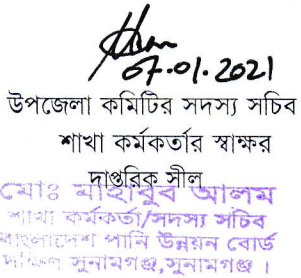 07.01.2021
উপজেলা কমিটির সদস্য সচিব
শাখা কর্মকর্তার স্বাক্ষর
দাপ্তরিক সীল
মোঃ মাহাবুব আলম
শাখা কর্মকর্তা/সদস্য সচিব
বাংলাদেশ পানি উন্নয়ন বোর্ড
সুনামগঞ্জ,সুনামগঞ্জ ।